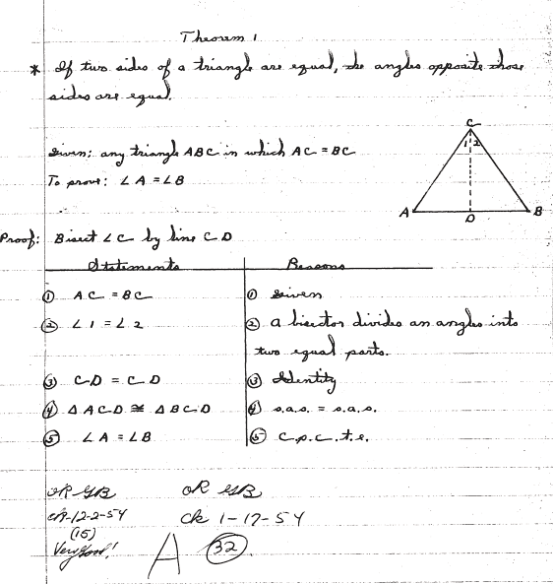 Theorem 1
* If two sides of a triangle are equal, the angles opposite those
sides are equal.
C
1 2
Given: any triangle ABC in which AC = BC
To prove: ∠A = ∠B
A D B
Proof: Bisect ∠C by line CD
Statements Reasons
① AC = BC ① Given
② ∠1 = ∠2 ② A bisector divides an angle into
two equal parts.
③ CD = CD ③ Identity
④ △ACD ≅ △BCD ④ s.a.s. = s.a.s.
⑤ ∠A = ∠B ⑤ c.p.c.t.e.
OK OK
12-2-54 ck 1-17-54
(15)
Very Good!
A 32